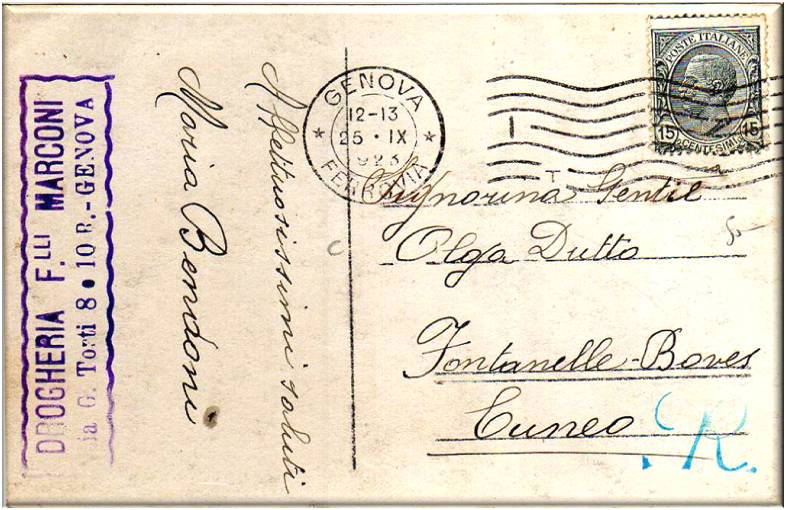 DROGHERIA F.LLI MARCONI
Via G. Torti 8 • 10 R.-GENOVA
Affettuosissimi saluti
Maria Bendoni
GENOVA
12-13
25 • IX
923
FERROVIA
POSTE ITALIANE
15 CENTESIMI 15
Signorina Gentil
Olga Dutto
Fontanelle-Boves
Cuneo
R.